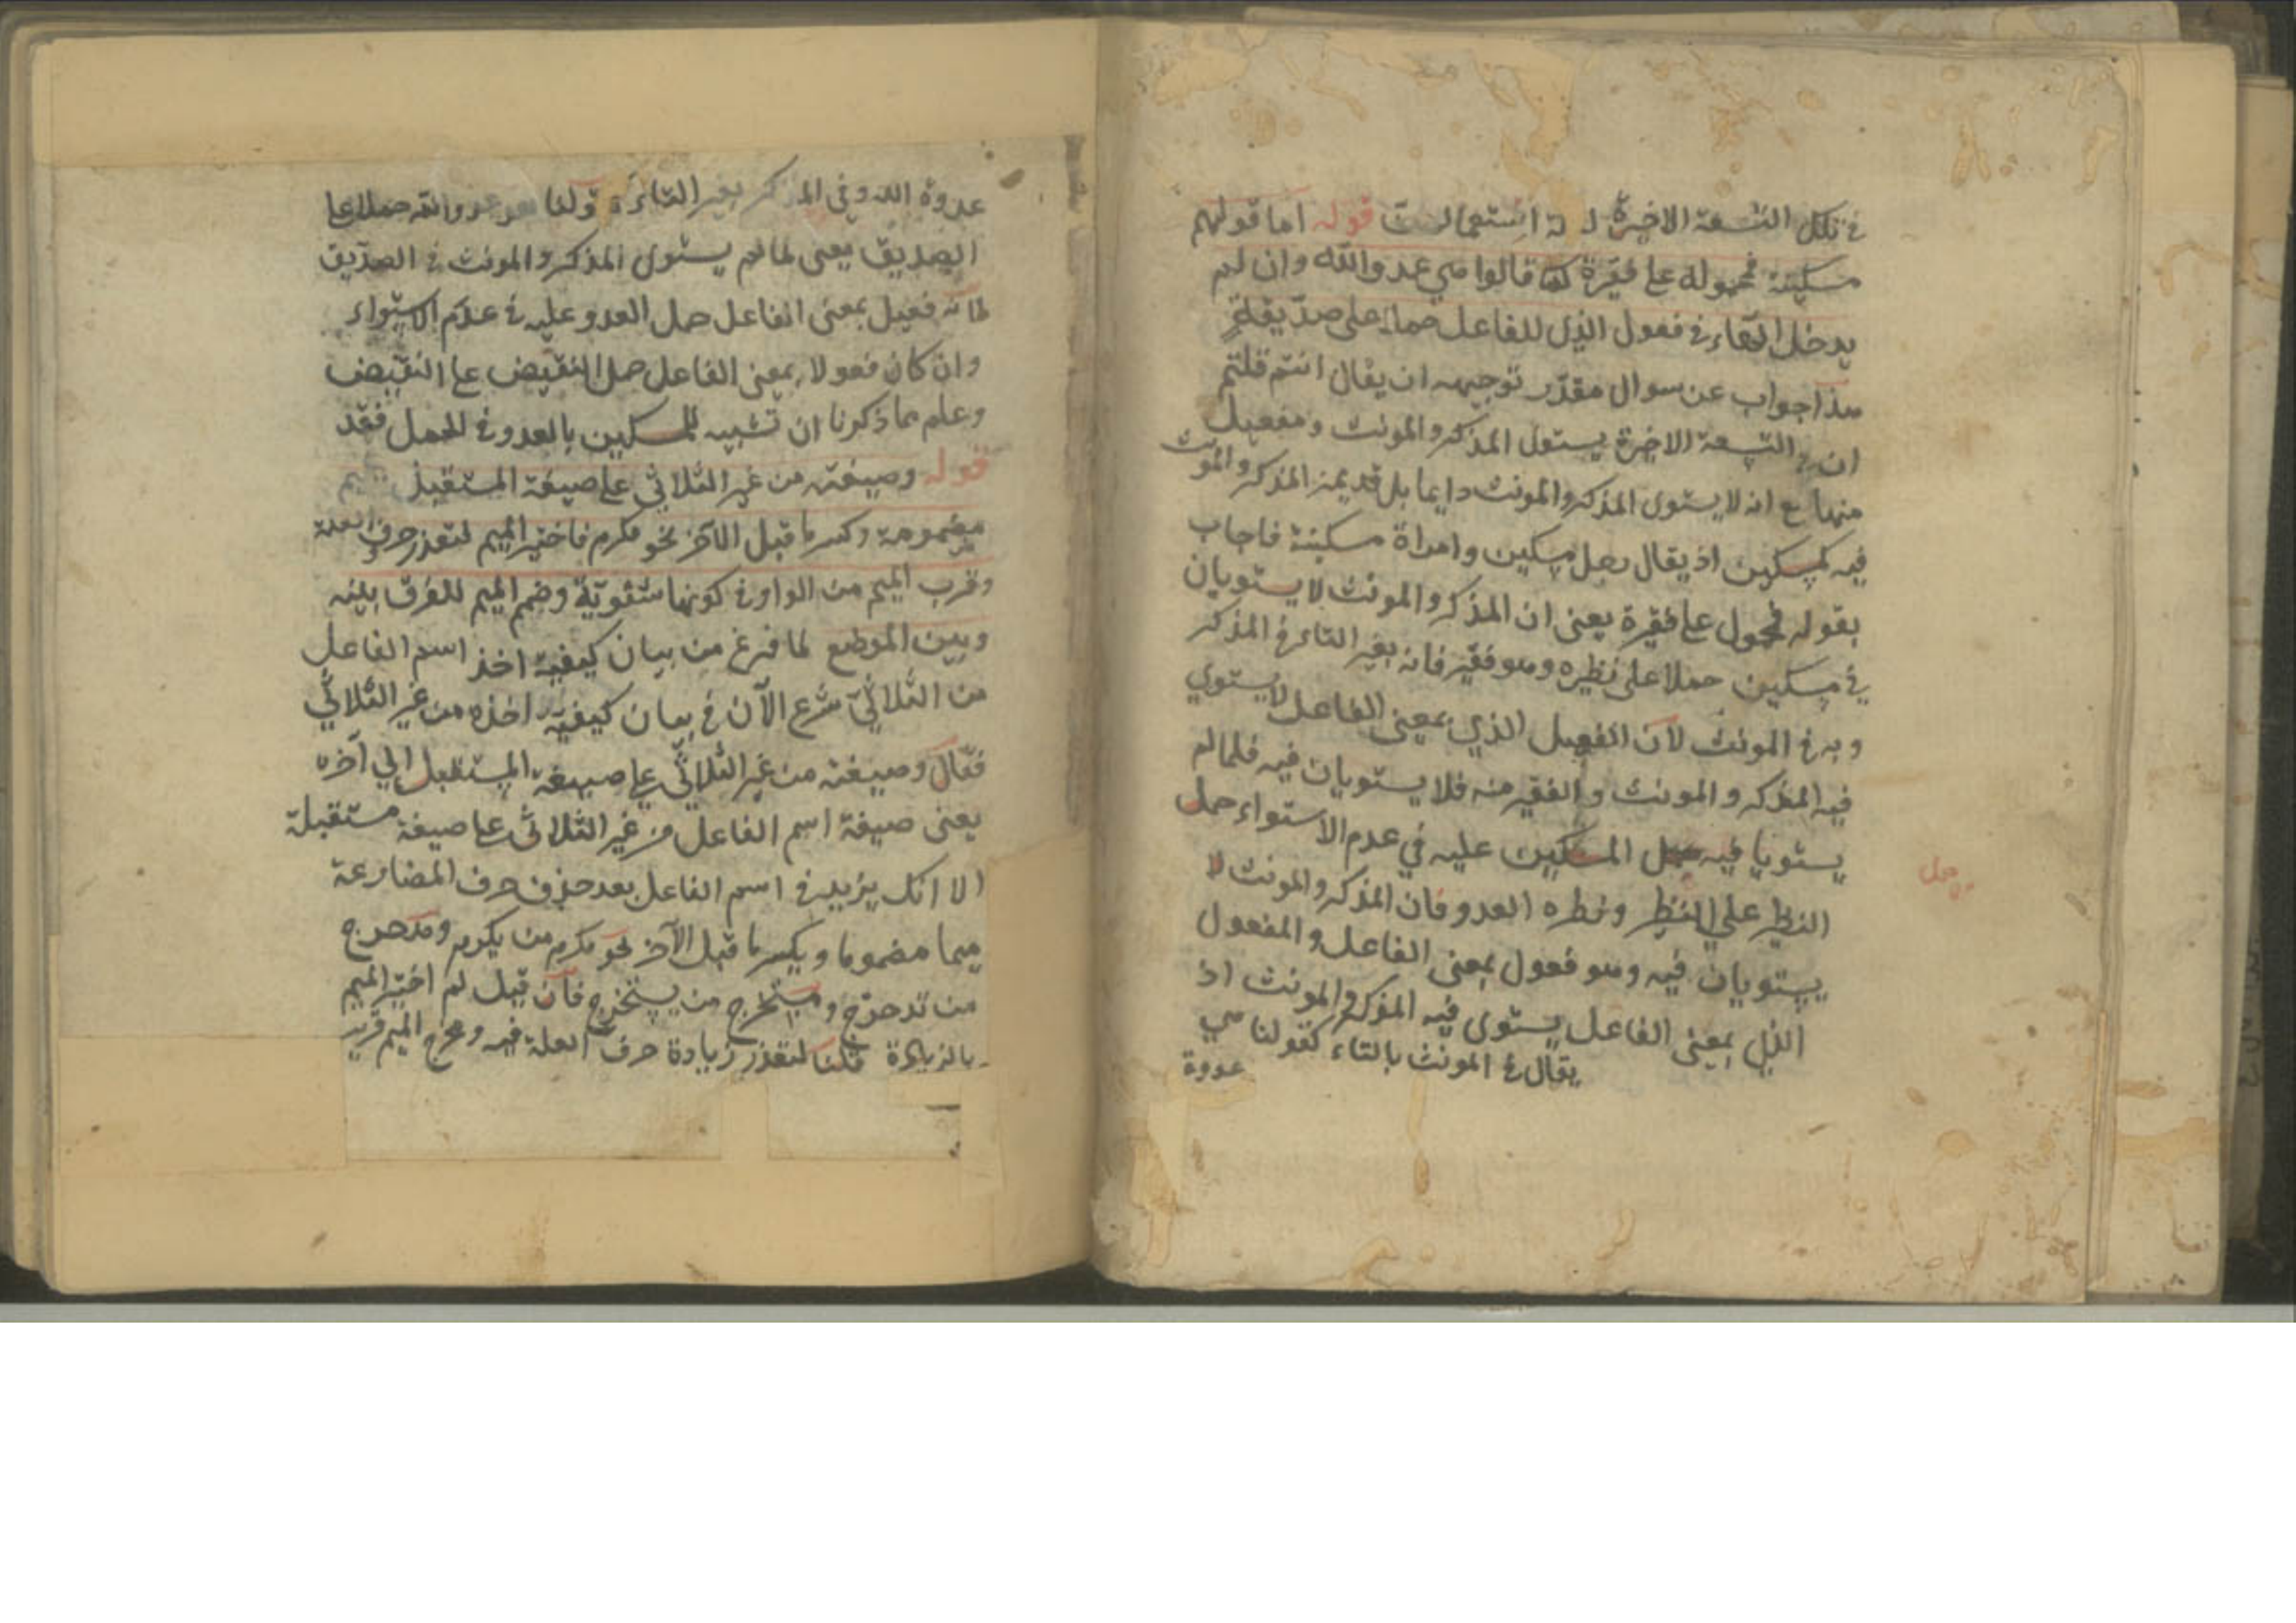 في تلك التسعة الاخيرة استعمالت قوله اما قولهم
مسكينة فمحمولة على فقيرة كما قالوا هي عدو الله وان لم
يدخل التاء في فعول الذي للفاعل حملا على صديقة
هذا جواب عن سوال مقدر توجيهه ان يقال انتم قلتم
ان في التسعة الاخيرة يستوى المذكر والمونث ومفعيل
منها مع انه لا يستوى المذكر والمونث دايما بل قد يميز المذكر والمونث
فيه كمسكين اذ يقال رجل مسكين وامراة مسكينة فاجاب
بقوله فمحمول على فقيرة يعنى ان المذكر والمونث لا يستويان
في مسكين حملا على نظيره وهو فقير فانه بغير التاء في المذكر
وبه في المونث لان الفعيل الذي بمعنى الفاعل لا يستوي
فيه المذكر والمونث والفقير منه فلا يستويان فيه فلما لم
يستويا فيه حمل المسكين عليه في عدم الاستواء حمل
النظير على النظير ونظيره العدو فان المذكر والمونث لا
يستويان فيه وهو فعول بمعنى الفاعل والمفعول
الذي بمعنى الفاعل يستوى فيه المذكر والمونث اذ
يقال في المونث بالتاء كقولنا هي
عدوة
عدوة الله وفي المذكر بغير التاء كقولنا هو عدو الله حملا على
الصديق يعنى لما لم يستوى المذكر والمونث في الصديق
لانه فعيل بمعنى الفاعل حمل العدو عليه في عدم الاستواء
وان كان فعولا بمعنى الفاعل حمل النقيض على النقيض
وعلم مما ذكرنا ان تشبيه المسكين بالعدو في الحمل فقد
قوله وصيغته من غير الثلاثي على صيغة المستقبل بميم
مضمومة وكسر ما قبل الآخر نحو مكرم فاختير الميم لتعذر حرف العلة
وقرب الميم من الواو في كونها شفوية وضم الميم للفرق بينه
وبين الموضع لما فرغ من بيان كيفية اخذ اسم الفاعل
من الثلاثي شرع الآن في بيان كيفية اخذه من غير الثلاثي
فقال وصيغته من غير الثلاثي على صيغة المستقبل الي آخره
يعنى صيغة اسم الفاعل من غير الثلاثي على صيغة مستقبلة
الا انك يزيد في اسم الفاعل بعد حذف حرف المضارعة
ميما مضموما ويكسر ما قبل الآخر نحو مكرم من يكرم ومتدحرج
من تدحرج ومستخرج من يستخرج فان قيل لم اختير الميم
بالزيادة قلنا لتعذر زيادة حرف العلة فيه ومخرج الميم قريب